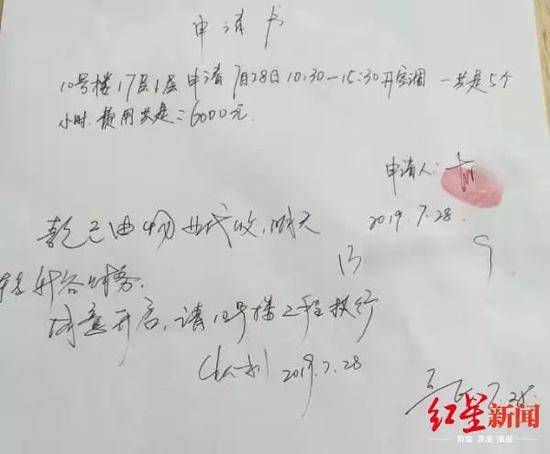 申请书
10号楼17层1层 申请 7月28日 10:30—15:30开空调 一共是5个
小时.费用共是:6000元.
申请人:
2019.7.28.
款已由物业代收,明天
转交给财务.
同意开启,请10号楼工程执行
2019.7.28
7.28.
红星新闻